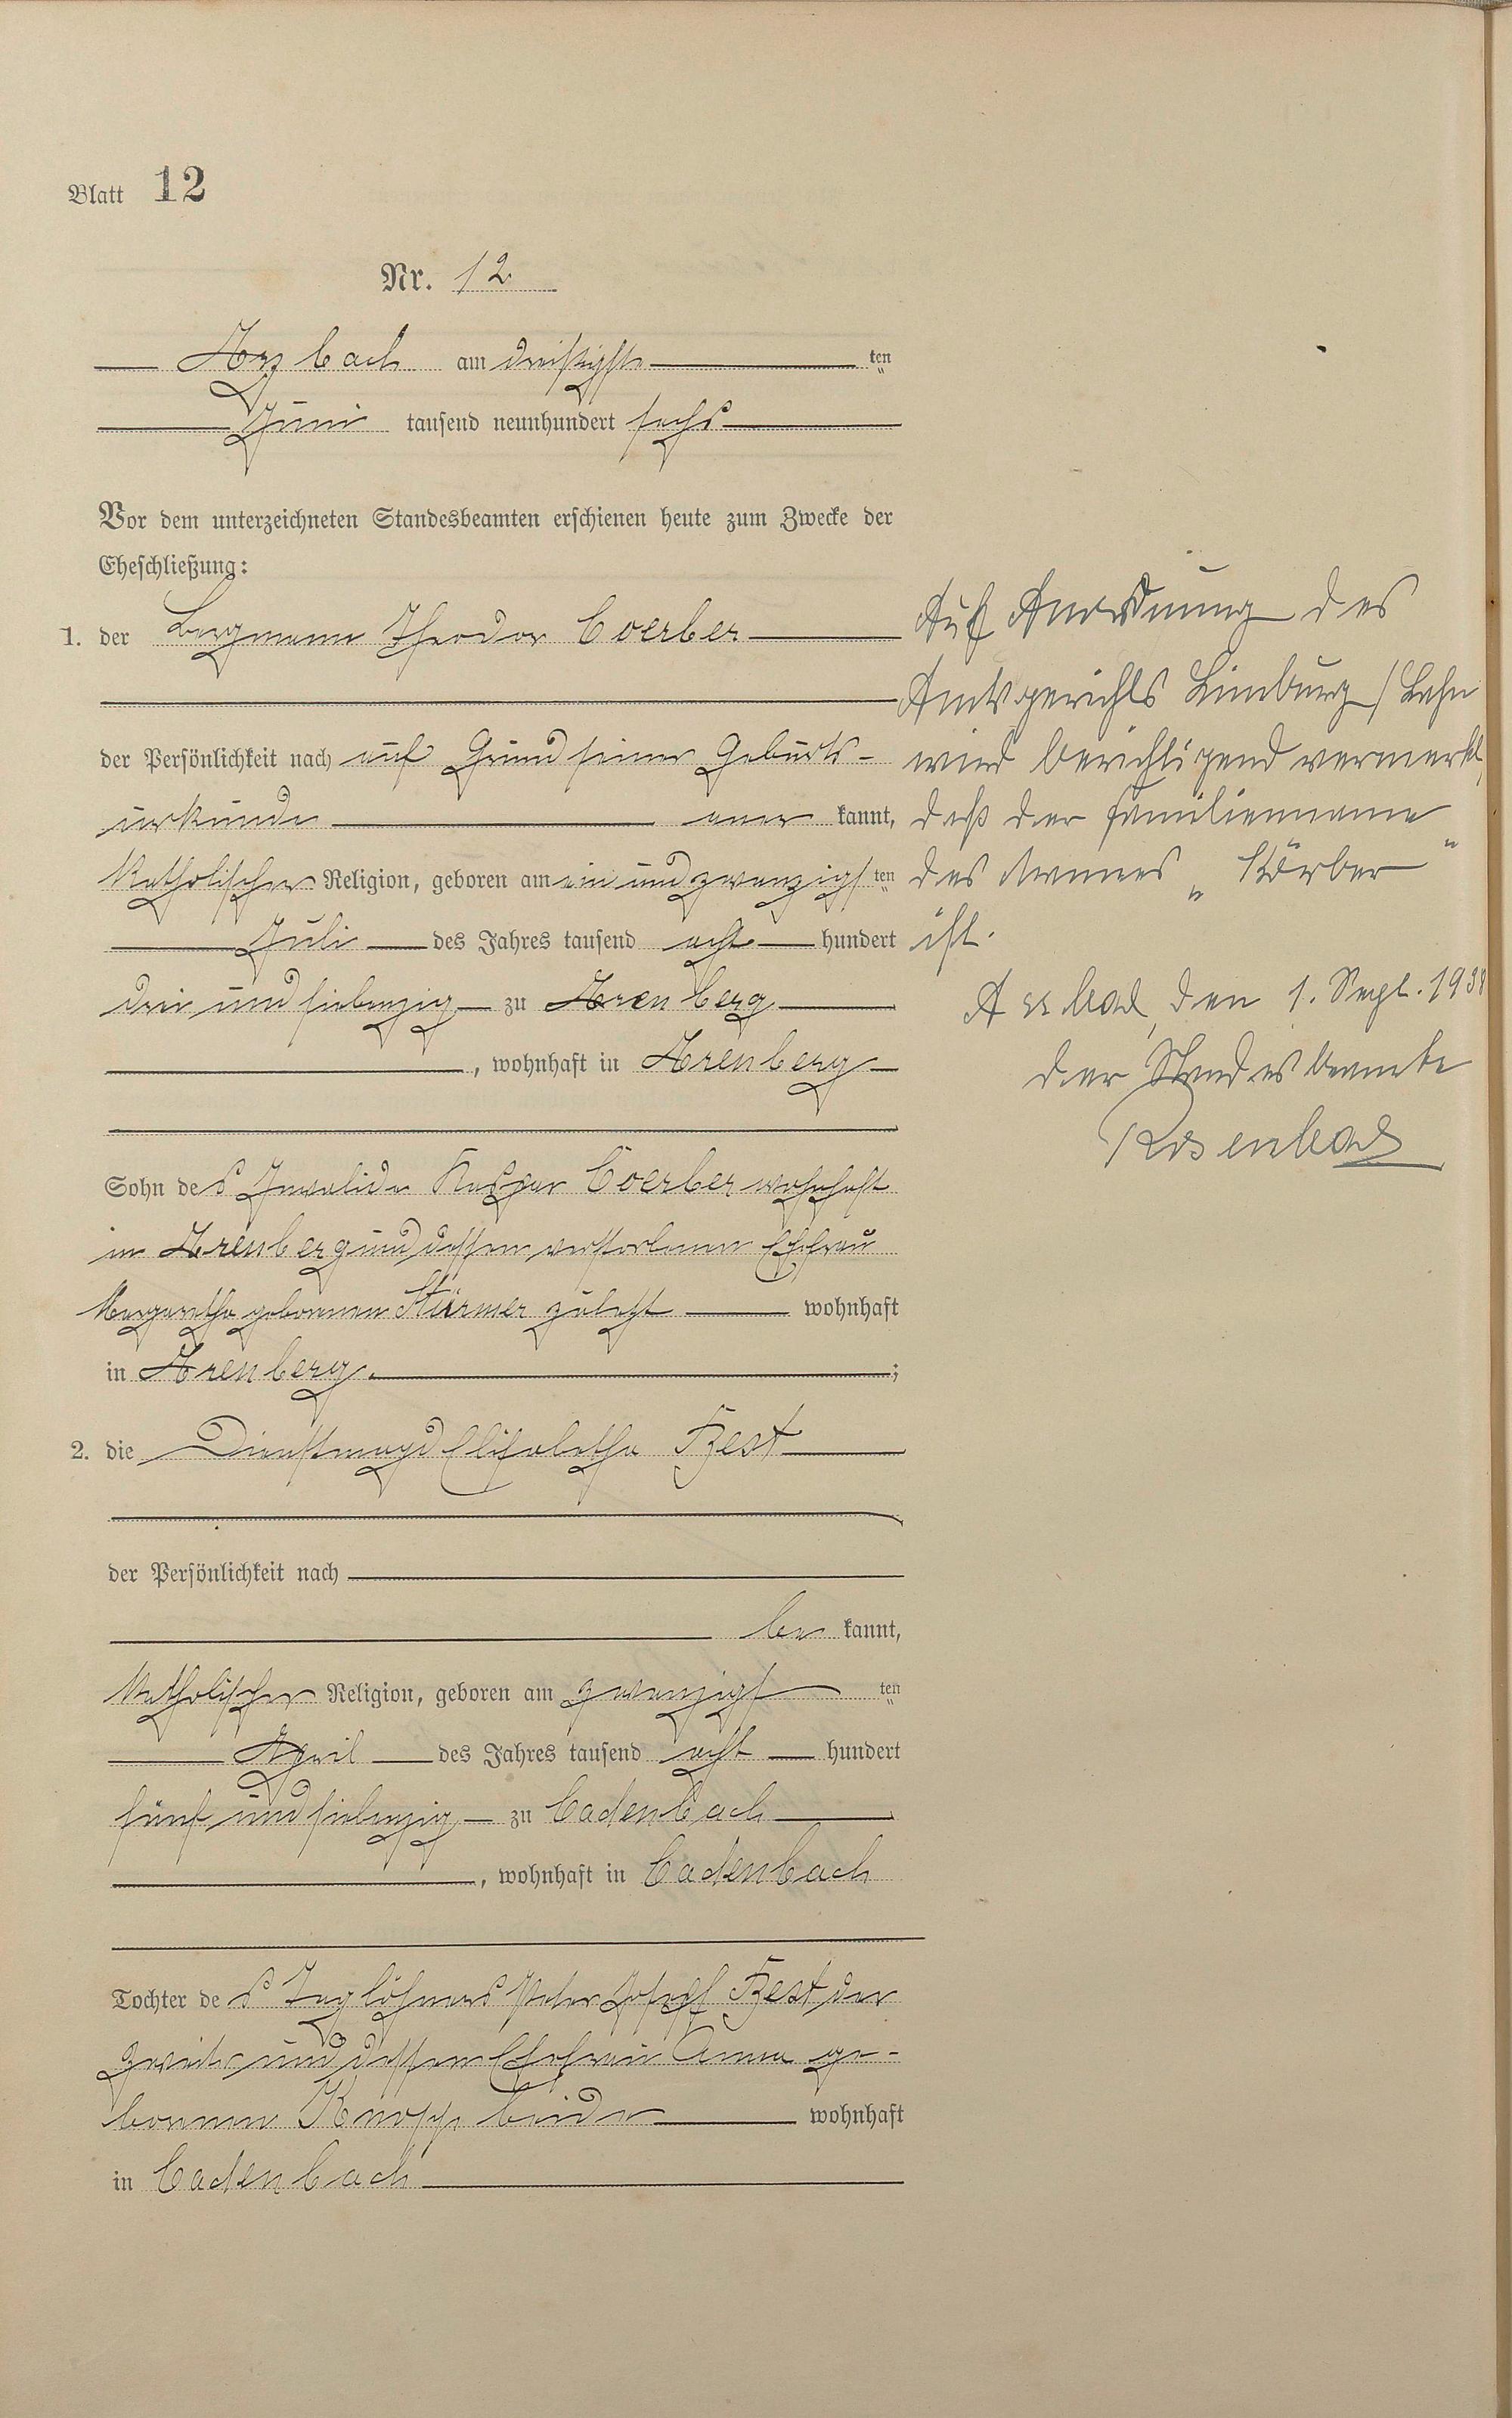 Blatt 12
Nr. 12
Arzbach am dreißigsten ten
Juni tausend neunhundert sechs
Vor dem unterzeichneten Standesbeamten erschienen heute zum Zwecke der
Eheschließung:
1. der Bergmann Theodor Coerber
der Persönlichkeit nach auf Grund seiner Geburts-
urkunde aner kannt,
katholischer Religion, geboren am ein und zwanzigs ten
Juli des Jahres tausend acht hundert
drei und siebenzig zu Arenberg
, wohnhaft in Arenberg
Sohn des Invalide Kaspar Coerber wohnhaft
in Arenberg und dessen verstorbenen Ehefrau
Margaretha geborenen Stürmer zuletzt wohnhaft
in Arenberg. ;
2. die Dienstmagd Elisabetha Best
der Persönlichkeit nach
be kannt,
katholischer Religion, geboren am zwanzigs ten
April des Jahres tausend acht hundert
fünf und siebenzig zu Cadenbach
, wohnhaft in Cadenbach
Tochter des Taglöhners Peter Josef Best der
zweite und dessen Ehefrau Anna ge-
borenen Knopp beide wohnhaft
in Cadenbach
Auf Anordnung des
Amtsgerichts Limburg/Lahn
wird berichtigend vermerkt,
daß der Familienname
des Mannes „Körber"
ist.
Arzbach, den 1. Sept. 1938
Der Standesbeamte
Rosenbach